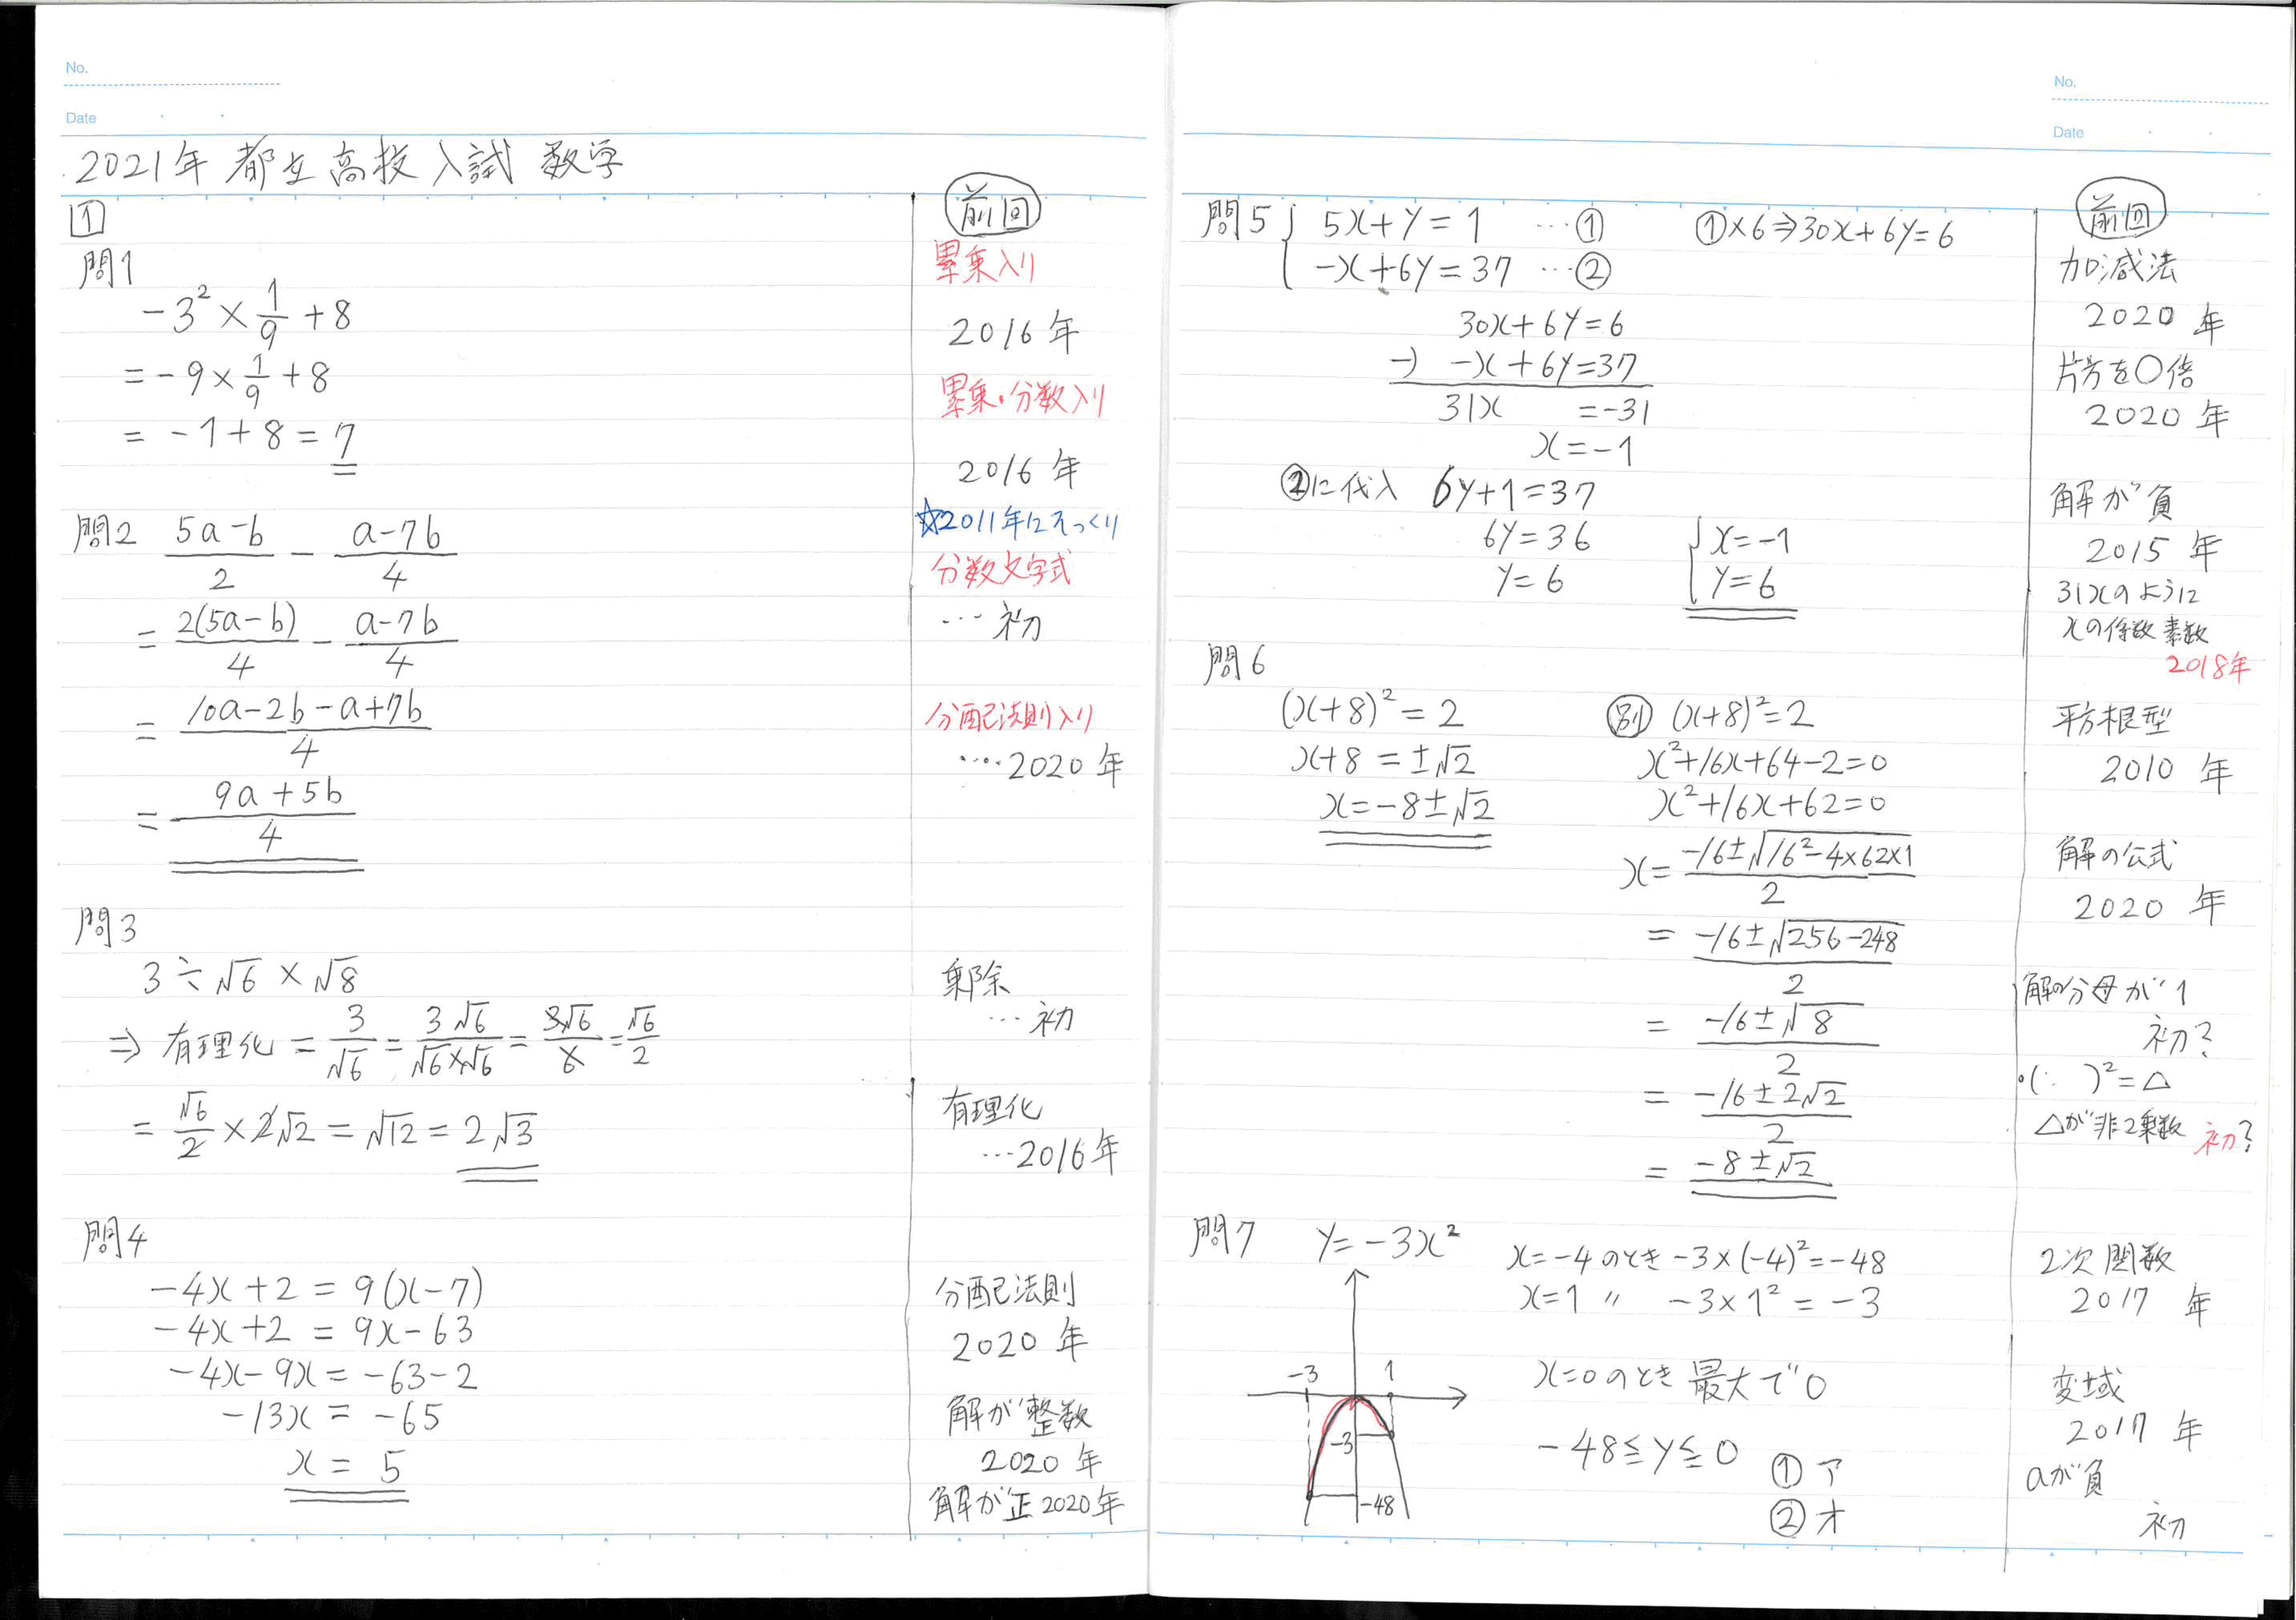 No.
Date
2021年 都立高校入試 数学
1
前回
問1
-3² × 1/9 + 8
= -9 × 1/9 + 8
= -1 + 8 = 7
累乗入り
2016年
累乗・分数入り
2016年
☆2011年にそっくり
問2 (5a-b)/2 - (a-7b)/4
= 2(5a-b)/4 - (a-7b)/4
= (10a-2b-a+7b)/4
= (9a+5b)/4
分数文字式
… 初
分配法則入り
…. 2020年
問3
3÷√6×√8
⇒ 有理化 = 3/√6 = 3√6/(√6×√6) = 3√6/6 = √6/2
= √6/2 × 2√2 = √12 = 2√3
乗除
… 初
有理化
… 2016年
問4
-4x+2 = 9(x-7)
-4x+2 = 9x-63
-4x-9x = -63-2
-13x = -65
x = 5
分配法則
2020年
解が整数
2020年
解が正 2020年
No.
Date
前回
問5 { 5x+y=1 …①
-x+6y=37 …②
①×6⇒30x+6y=6
30x+6y=6
-) -x+6y=37
31x =-31
x=-1
②に代入 6y+1=37
6y=36
y=6
{ x=-1
y=6
加減法
2020年
片方を〇倍
2020年
解が負
2015年
31xのように
xの係数素数
2018年
問6
(x+8)²=2
x+8=±√2
x=-8±√2
別 (x+8)²=2
x²+16x+64-2=0
x²+16x+62=0
x= (-16±√(16²-4×62×1))/2
= (-16±√(256-248))/2
= (-16±√8)/2
= (-16±2√2)/2
= -8±√2
平方根型
2010年
解の公式
2020年
解の分母が1
初?
・( )²=△
△が非2乗数 初?
問7 y=-3x²
x=-4のとき -3×(-4)²=-48
x=1 〃 -3×1²=-3
x=0のとき 最大で0
-48≦y≦0
① ア
② オ
-3
1
-3
-48
2次関数
2017年
変域
2017年
aが負
初